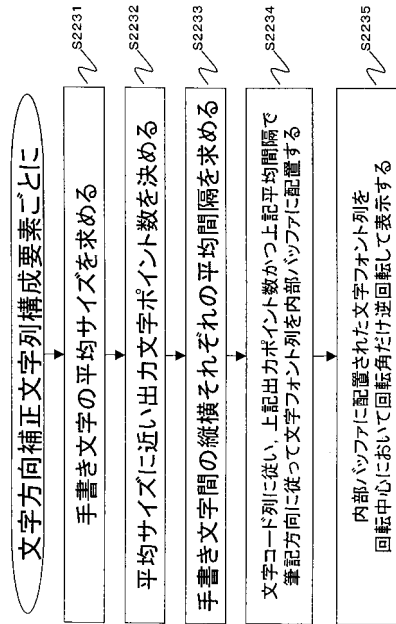 文字方向補正文字列構成要素ごとに
S2231
手書き文字の平均サイズを求める
S2232
平均サイズに近い出力文字ポイント数を決める
S2233
手書き文字間の縦横それぞれの平均間隔を求める
S2234
文字コード列に従い、上記出力ポイント数かつ上記平均間隔で
筆記方向に従って文字フォント列を内部バッファに配置する
S2235
内部バッファに配置された文字フォント列を
回転中心において回転角だけ逆回転して表示する